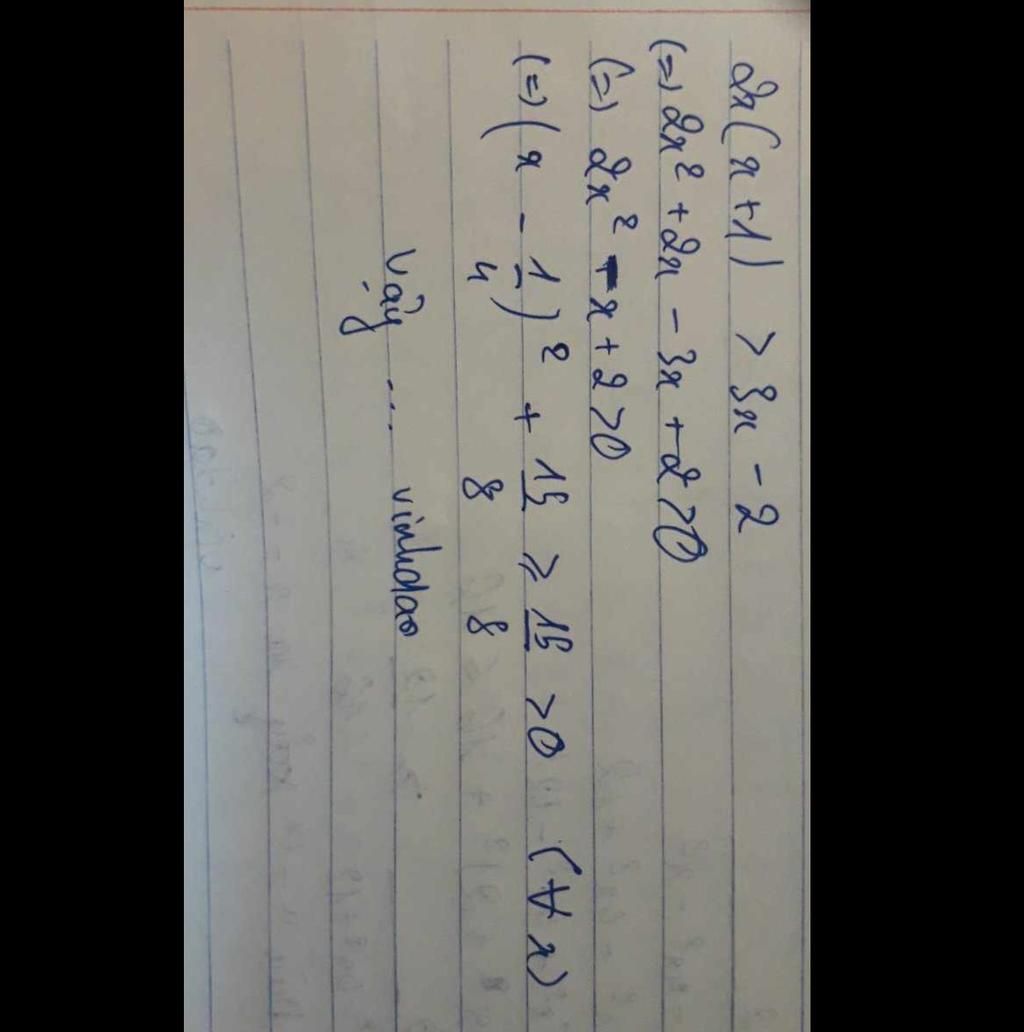 2x(x+1) > 3x - 2
(=) 2x² + 2x - 3x + 2 > 0
(=) 2x² - x + 2 > 0
(=) (x - 1/4)² + 15/8 ≥ 15/8 > 0 (∀x)
Vậy ... vinhdao